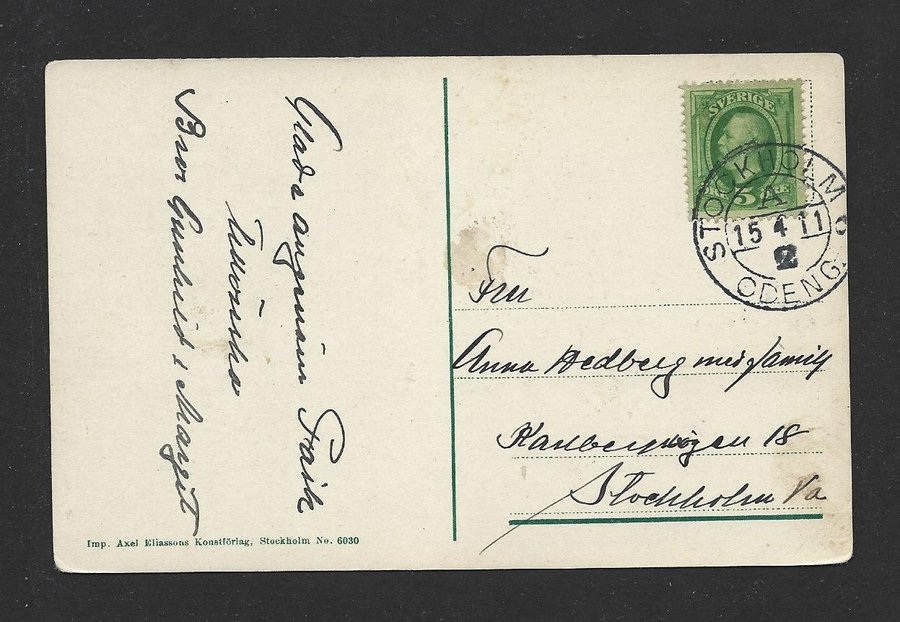 Glad o angenäm Påsk
tillönska
Bror Gunhild o Margit
SVERIGE
5 ÖRE
STOCKHOLM
A
15 4 11
2
ODENG.
Fru
Anna Hedberg med familj
Karlbergsvägen 18
Stockholm Va
Imp. Axel Eliassons Konstförlag, Stockholm No. 6030